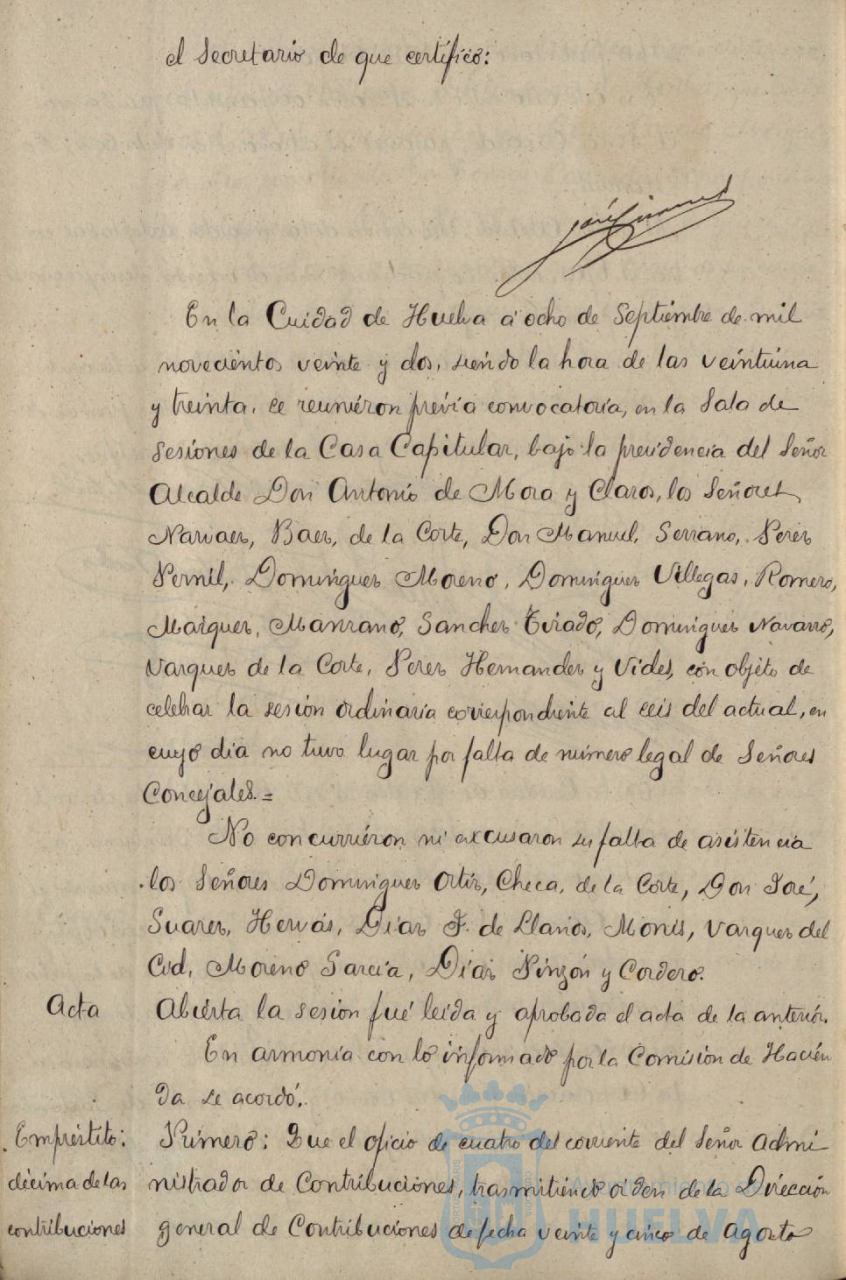 el Secretario de que certifico:
José Jimenez
En la Cuidad de Huelva á ocho de Septiembre de mil
novecientos veinte y dos, siendo la hora de las veintiuna
y treinta, se reunieron previa convocatoria, en la Sala de
Sesiones de la Casa Capitular, bajo la presidencia del Señor
Alcalde Don Antonio de Mora y Claros, los Señores
Narvaes, Baes, de la Corte, Don Manuel, Serrano, Peres
Pernil, Domingues Moreno, Domingues Villegas, Romero,
Maiques, Manzano, Sanches Tirado, Domingues Navarro,
Vasques de la Corte, Peres Hernandes y Vides, con objeto de
celebrar la sesion ordinaria correspondiente al seis del actual, en
cuyo dia no tuvo lugar por falta de número legal de Señores
Concejales.=
No concurrieron ni excusaron su falta de asistencia
los Señores Domingues Ortis, Checa, de la Corte, Don José,
Suares, Hervás, Dias F. de Llanos, Monis, Vasques del
Cid, Moreno Garcia, Dias Pinzón y Cordero.
Acta Abierta la sesion fué leida y aprobada el acta de la anterior.
En armonia con lo informado por la Comision de Hacien
da se acordó.
Empréstito: Primero: Que el oficio de cuatro del corriente del Señor Admi
décima de las nistrador de Contribuciones, trasmitiendo orden de la Dirección
contribuciones general de Contribuciones de fecha veinte y cinco de Agosto
Ayuntamiento
HUELVA